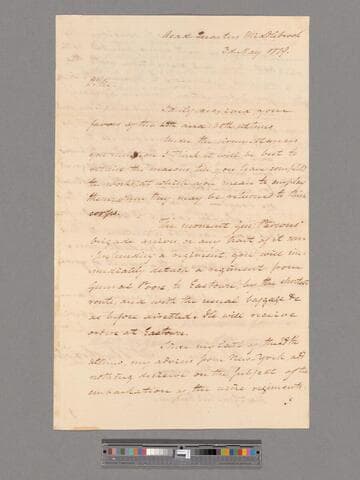 Head Quarters Middlebrook
3d May 1779.
Sir,
I duly received your
favors of the 28th and 30th ultimo.
Under the circumstances
you mention I think it will be best to
retain the masons till you have completed
the works at which you mean to employ
them when they may be returned to their
corps.
The moment Gen. Parsons'
brigade arrives or any part of it
exceeding a regiment, you will im-
mediately detach a regiment from
General Poor to Easton by the shortest
route and with the usual baggage &c
as before directed. He will receive
orders at Easton.
Since my last of the
ultimo, my advices from New York add
nothing decisive on the subject of the
embarkation of the nine regiments